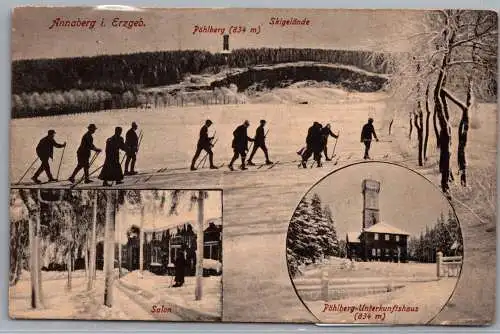 Annaberg i. Erzgeb.
Pöhlberg (834 m)
Skigelände
Salon
Pöhlberg-Unterkunftshaus
(834 m)